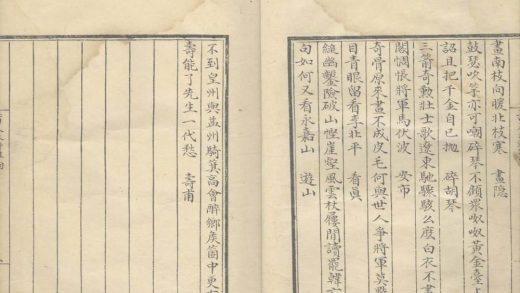 畫南枝向暖北枝寒　畫隐
鼓瑟吹竽亦可嘲碎琴不顧衆呶呶黄金臺
詔且把千金自已抛　碎胡琴
三箭奇勳壯士歌遼東馳驟駭么麽白衣不
閣惆悵將軍馬伏波　安市
奇骨原來畫不成皮毛何與世人爭將軍莫
目青眼留看李北平　看眞
縋幽鑿險破山慳崖壑風雲杖屨閒讀罷韓
句如何又看永嘉山　遊山
不到皇州與盖州騎箕高會醉鄉矦箇中更
壽能了先生一代愁　壽甫